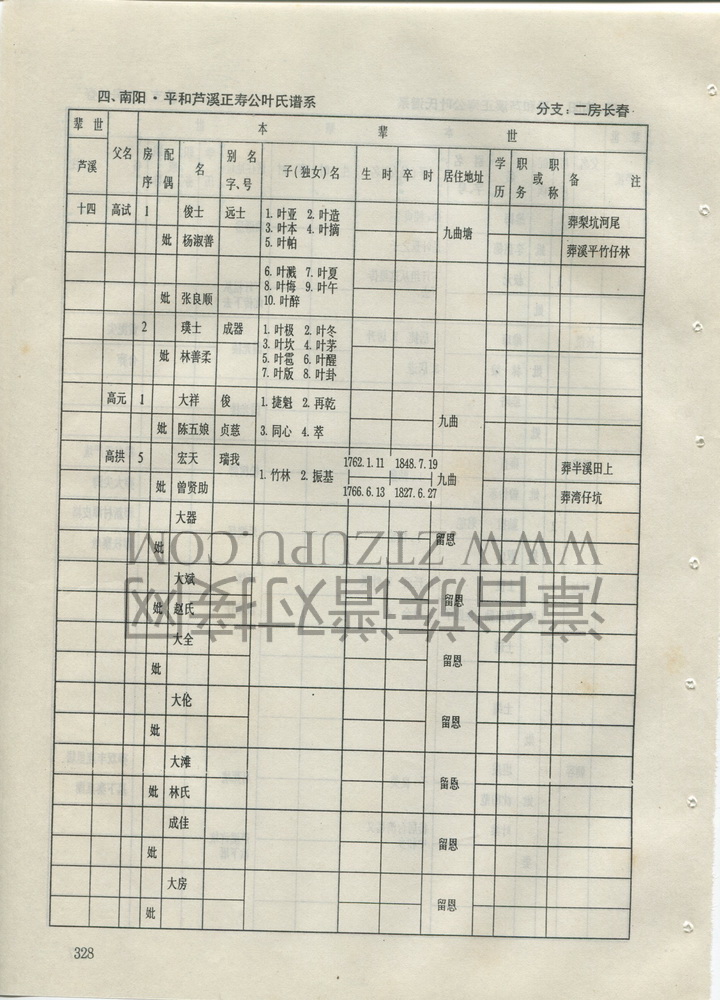 四、南阳·平和芦溪正寿公叶氏谱系
分支：二房长春
辈世 本 辈 世
芦溪 父名 房序 配偶 名 别名字、号 子(独女)名 生时 卒时 居住地址 学历 职务或职称 备注
十四 高试 1 俊士 远士 1.叶亚 2.叶造 九曲塘 葬梨坑河尾
3.叶本 4.叶摘
妣 杨淑善 5.叶帕 葬溪平竹仔林
6.叶溅 7.叶夏
8.叶悔 9.叶午
妣 张良顺 10.叶醉
2 璞士 成器 1.叶极 2.叶冬
3.叶坎 4.叶茅
妣 林善柔 5.叶雹 6.叶醒
7.叶版 8.叶卦
高元 1 大祥 俊 1.捷魁 2.再乾 九曲
妣 陈五娘 贞慈 3.同心 4.萃
高拱 5 宏天 瑞我 1.竹林 2.振基 1762.1.11 1848.7.19 九曲 葬半溪田上
妣 曾贤助 1766.6.13 1827.6.27 葬湾仔坑
大器 留恩
妣
大斌 留恩
妣 赵氏
大全 留恩
妣
大伦 留恩
妣
大滩 留恩
妣 林氏
成佳 留恩
妣
大房 留恩
妣
328
WWW.ZTZUPU.COM
漳台族谱对接网